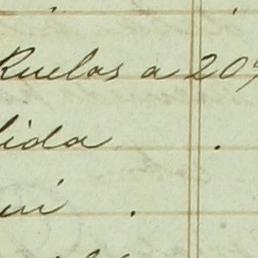 Ruelas a 20
lida .
ui .